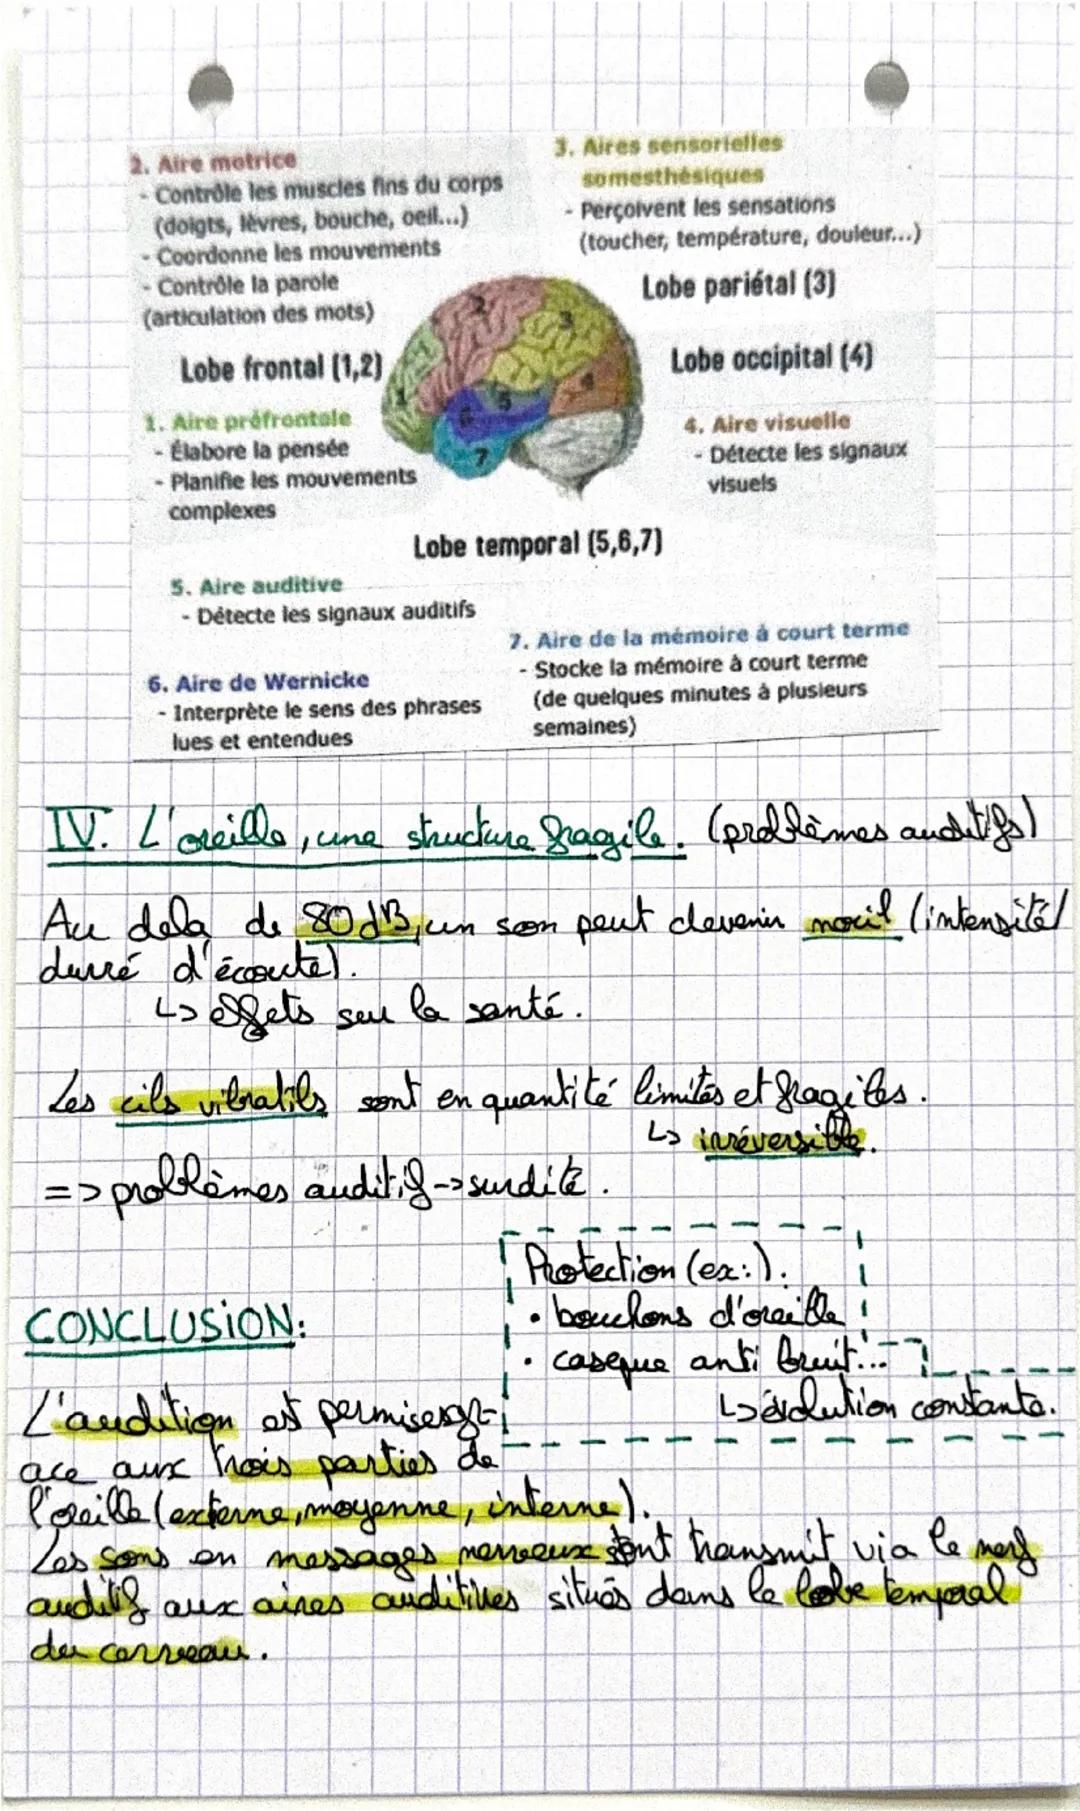 2. Aire motrice
- Contrôle les muscles fins du corps
(doigts, lèvres, bouche, oeil...)
- Coordonne les mouvements
- Contrôle la parole
(articulation des mots)
3. Aires sensorielles
somesthésiques
- Perçoivent les sensations
(toucher, température, douleur...)
Lobe pariétal (3)
Lobe frontal (1,2)
Lobe occipital (4)
1. Aire préfrontale
- Élabore la pensée
- Planifie les mouvements
complexes
4. Aire visuelle
- Détecte les signaux
visuels
2
3
1
4
5
6
7
Lobe temporal (5,6,7)
5. Aire auditive
- Détecte les signaux auditifs
6. Aire de Wernicke
- Interprète le sens des phrases
lues et entendues
7. Aire de la mémoire à court terme
- Stocke la mémoire à court terme
(de quelques minutes à plusieurs
semaines)
IV. L'oreille, une structure fragile. (problèmes auditifs)
Au dela de 80 dB, un son peut devenir nocif (intensité/
durré d'écoute).
↳ effets sur la santé.
Les cils vibratils sont en quantité limités et fragiles.
↳ irréversible.
=> problèmes auditif -> surdité.
Protection (ex:).
• bouchons d'oreille
• casque anti bruit...
↳ évolution constante.
CONCLUSION:
L'audition est permise gr-
ace aux trois parties de
l'oreille (externe, moyenne, interne).
Les sons en messages nerveux sont transmit via le nerf
auditif aux aires auditives situés dans le lobe temporal
du cerveau.